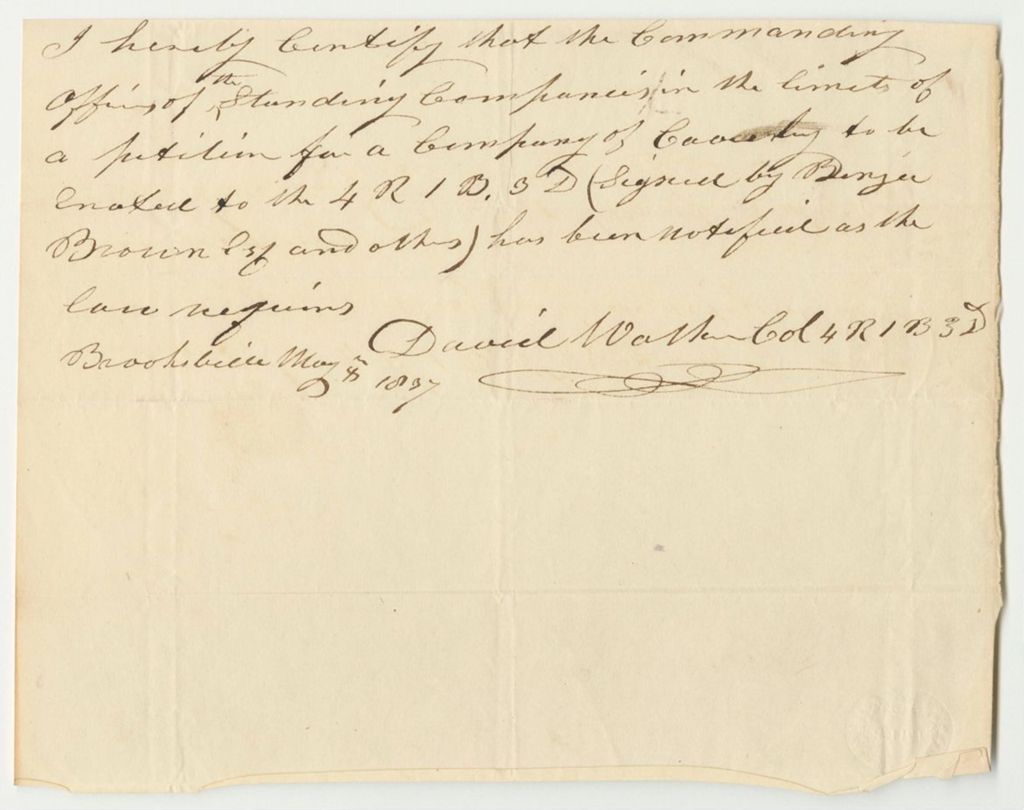 I hereby Certify that the Commanding
Officers of the Standing Companies in the limits of
a petition for a Company of Cavalry to be
Enated to the 4 R 1 B. 3 D (Signed by Benja
Brown Esq and others) has been notified as the
law requires
David Walker Col 4 R 1 B 3 D
Brooksville May 8th 1837